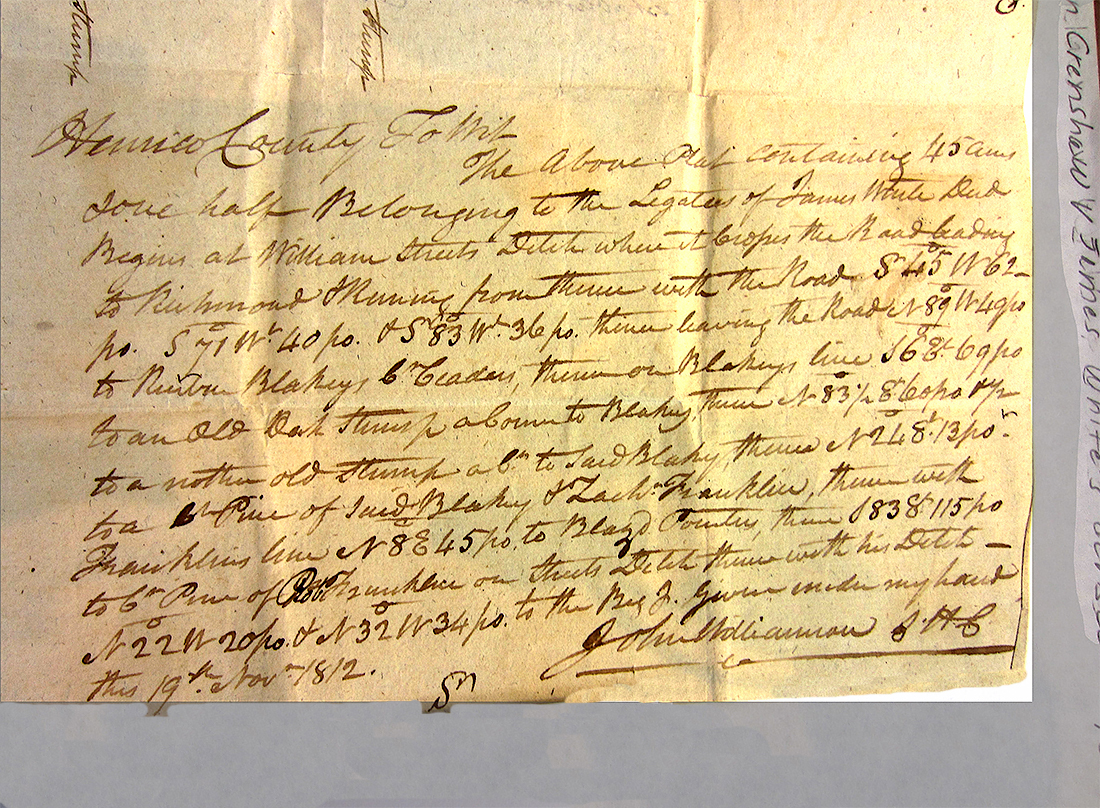 stump
stump
Henrico County To Wit
The Above Plat containing 45 acres
& one half Belonging to the Legatees of James White Decd
Begins at William Streets Ditch where it Crosses the Road leading
to Richmond & Runing from thence with the Road S 45 W 62
po. S 71 Wt. 40 po. & S 83 Wt. 36 po. thence leaving the Road N 89 W 49 po
to Blakeys Cr Ceadars, thence on Blakeys line S 6 Et 69 po
to an Old Oak Stump a Corner to Blakey, thence N 83 1/2 E 60 po
to a nother old Stump a Cr to Said Blakey, thence N 24 Et 13 po
to a Pine of Said Blakey & Zachr Franklin, thence with
Franklins line N 8 E 45 po. to Blazd Pointers, thence S 83 Et 115 po
to Cr Pine of Robt Franklin on Streets Ditch thence with his Ditch
N 22 W 20 po. & N 32 W 34 po. to the Beg g. Given under my hand
this 19th Novr 1812.
John Williamson S H C
Sn
Crenshaw v James White's